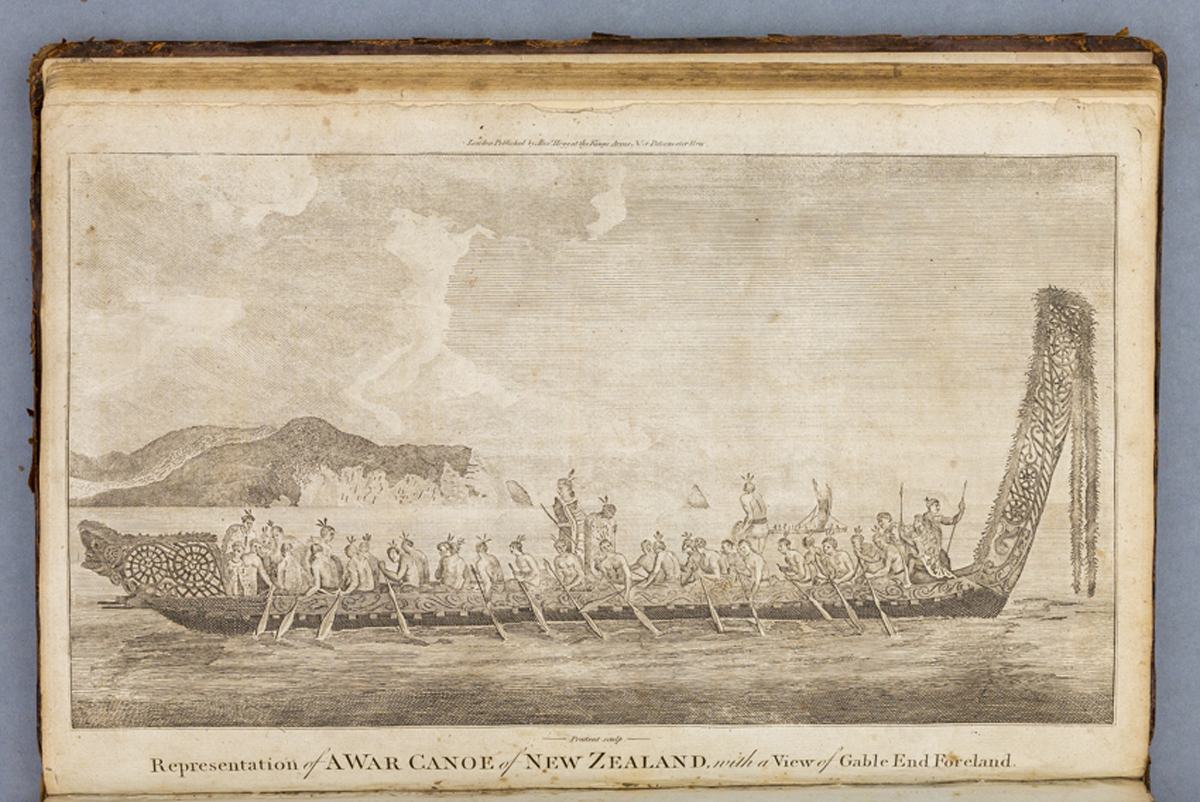 London Published by Alexr. Hogg at the Kings Arms, No. Paternoster Row
Prattent sculp.
Representation of A WAR CANOE of NEW ZEALAND, with a View of Gable End Foreland.